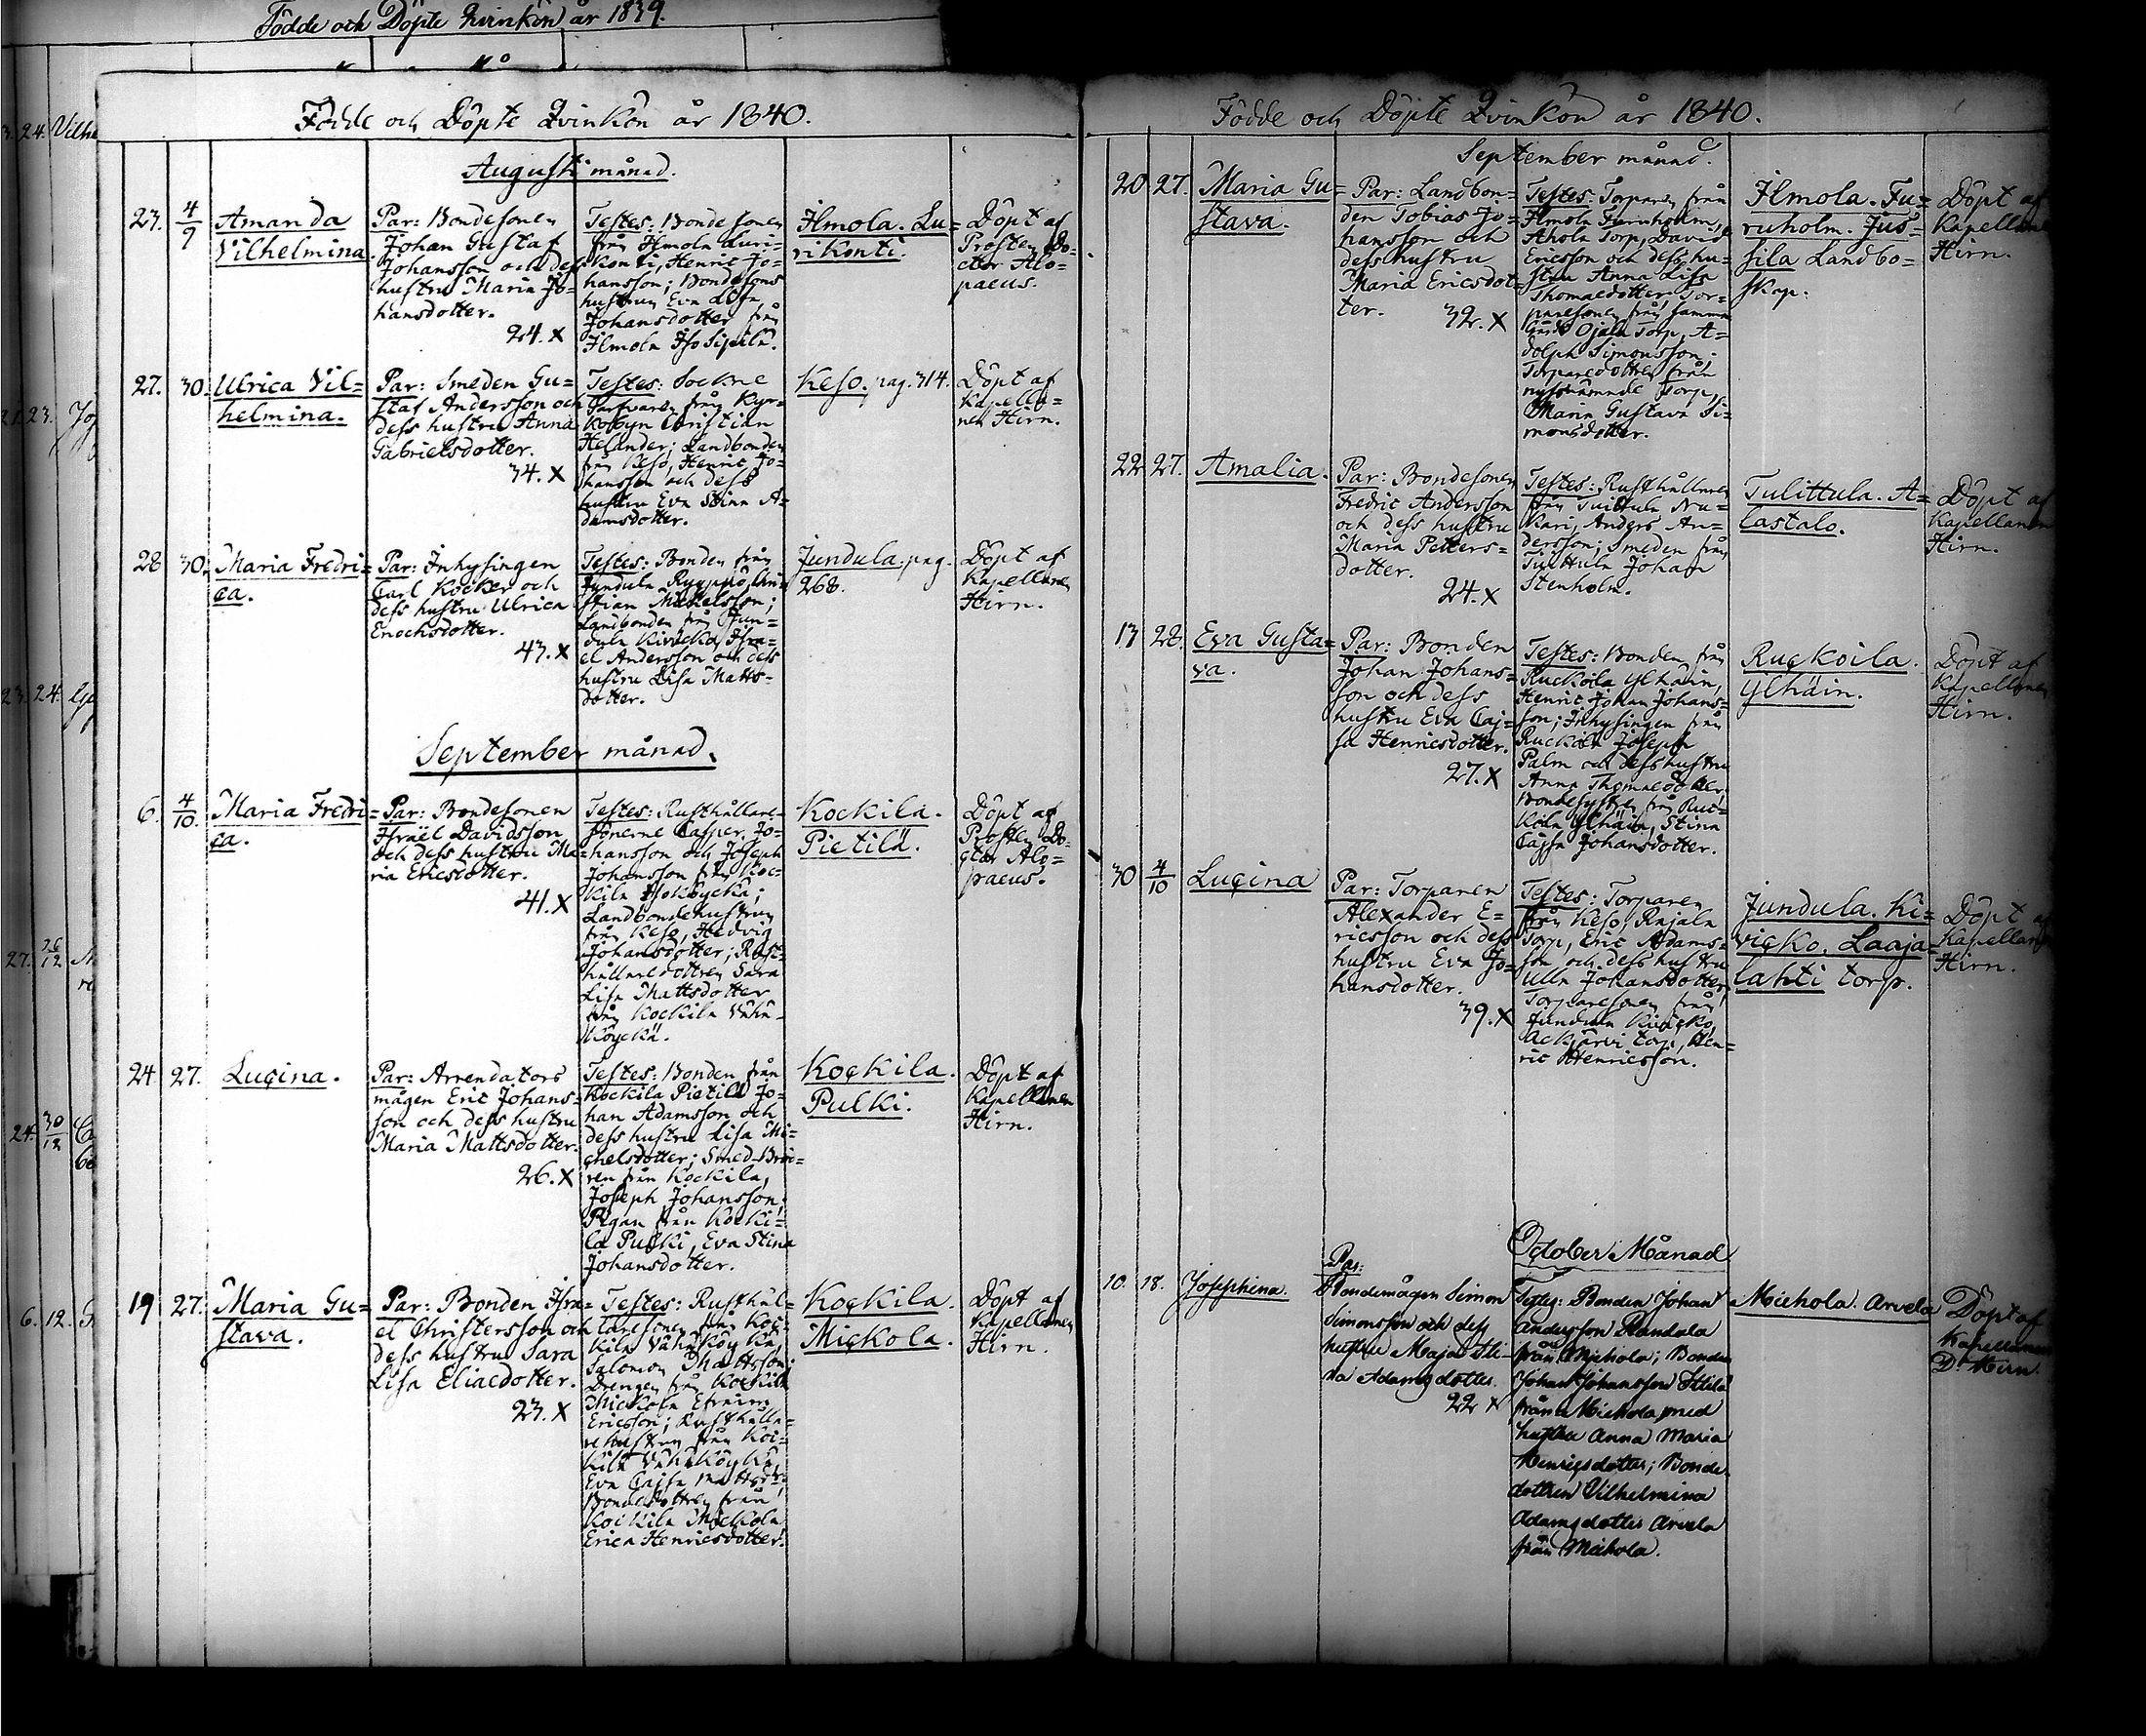 Födde och Döpte Qvinkön år 1839.
Födde och Döpte Qvinkön år 1840.
Augusti månad.
23. 4/9 Amanda
Vilhelmina.
Par: Bondesonen
Johan Gustaf
Johansson och dess
hustru Maria Jo=
hansdotter.
24. x
Testes: Bondesonen
från Ilmola Lu=
rikonti, Henric Jo=
hansson; Bondesons
hustrun Eva Lisa
Johansdotter från
Ilmola Iso Sipilä.
Ilmola. Lu=
rikonti.
Döpt af
Prosten Do=
ctor Alo=
paeus.
27. 30. Ulrica Vil=
helmina.
Par: Smeden Gu=
staf Andersson och
dess hustru Anna
Gabrielsdotter.
34. x
Testes: Sockne
från Kyr=
kobyn Christian
Helander; Landbonden
från Keso, Henric Jo=
hansson och dess
hustru Eva Stina A=
damsdotter.
Keso. pag. 314.
Döpt af
Kapella=
nen Hirn.
28 30. Maria Fredri=
ca.
Par: Inhysingen
Carl Köcker och
dess hustru Ulrica
Enochsdotter.
43. x
Testes: Bonden från
Jundula Ryyppö, Chri=
stian Mickelsson;
Landbonden från Jun=
dula Kivicko, Isra=
el Andersson och dess
hustru Lisa Matts=
dotter.
Jundula. pag.
268.
Döpt af
Kapellanen
Hirn.
September månad.
6. 4/10. Maria Fredri=
ca.
Par: Bondesonen
Israël Davidsson
och dess hustru Ma=
ria Ericsdotter.
41. x
Testes: Rusthållare=
sönerne Casper Jo=
hansson och Joseph
Johansson från Koc=
kila Isoköyckä;
Landbondehustrun
från Keso, Hedvig
Johansdotter; Rust=
hållaredottren Sara
Lisa Mattsdotter
från Kockila Vähä=
köyckä.
Kockila.
Pietilä.
Döpt af
Prosten Do=
ctor Alo=
paeus.
24. 27. Lucina.
Par: Arrendators
mågen Eric Johans=
son och dess hustru
Maria Mattsdotter.
26. x
Testes: Bonden från
Kockila Pietilä Jo=
han Adamsson och
dess hustru Lisa Mi=
chelsdotter; Smed
från Kockila,
Joseph Johansson;
Pigan från Kocki=
la Pulki, Eva Stina
Johansdotter.
Kockila.
Pulki.
Döpt af
Kapellanen
Hirn.
19 27. Maria Gu=
stava.
Par: Bonden Isra=
el Christersson och
dess hustru Sara
Lisa Eliaedotter.
23. x
Testes: Rusthål=
laresonen från Koc=
kila Vähäköyckä,
Salomon Mattsson;
Drengen från Kockila
Mickola Efraim
Ericsson; Rusthålla=
rehustrun från Koc=
kila Vähäköyckä,
Eva Cajsa Mattsdr;
Bondedottren från
Kockila Mickola
Erica Henricsdotter.
Kockila.
Mickola.
Döpt af
Kapellanen
Hirn.
Födde och Döpte Qvinkön år 1840.
September månad.
20 27. Maria Gu=
stava.
Par: Landbon=
den Tobias Jo=
hansson och
dess hustru
Maria Ericsdot=
ter.
32. x
Testes: Torparen från
Ilmola Furuholm,
Ahola Torp, David
Ericsson och dess hu=
stru Anna Lisa
Thomaedotter; Tor=
paresonen från samma
Gård Ojala Torp, A=
dolph Simonsson;
Torparedottren från
nyssnämnde Torp,
Maria Gustava Si=
monsdotter.
Ilmola. Fu=
ruholm. Jus=
sila Landbo=
skap.
Döpt af
Kapellanen
Hirn.
22 27. Amalia.
Par: Bondesonen
Fredric Andersson
och dess hustru
Maria Petters=
dotter.
24. x
Testes: Rusthållaren
från Tulittula Nu=
kari, Anders An=
dersson; Smeden från
Tulittula Johan
Stenholm.
Tulittula. A=
lastalo.
Döpt af
Kapellanen
Hirn.
13 28. Eva Gusta=
va.
Par: Bonden
Johan Johans=
son och dess
hustru Eva Caj=
sa Henricsdotter.
27. x
Testes: Bonden från
Ruckoila Ylhäin,
Henric Johan Johans=
son; Inhysingen från
Ruckoila Joseph
Palm och dess hustru
Anna Thomaedotter,
Bondesystren från Ruc=
koila Ylhäin, Stina
Cajsa Johansdotter.
Ruckoila.
Ylhäin.
Döpt af
Kapellanen
Hirn.
30 4/10 Lucina
Par: Torparen
Alexander E=
ricsson och dess
hustru Eva Jo=
hansdotter.
39. x
Testes: Torparen
från Keso, Rajala
Torp, Eric Adams=
son och dess hustru
Ulla Johansdotter,
Torparesonen från
Jundula Kivicko,
Ackjärvi torp, Hen=
ric Henricsson.
Jundula. Ki=
vicko. Laaja=
lahti torp.
Döpt af
Kapellanen
Hirn.
October Månad
10. 18. Josephina.
Par:
Bondemågen Simon
Simonsson och dess
hustru Maja Sti=
na Adamsdotter.
22 x
Testes: Bonden Johan
Andersson Randala
från Mickola; Bonden
Johan Johansson Ettilä
från Mickola med
hustru Anna Maria
Henricsdotter; Bonde
dottren Vilhelmina
Adamsdotter Arvela
från Mickola.
Mickola. Arvela
Döpt af
Kapellanen
Dr Hirn.